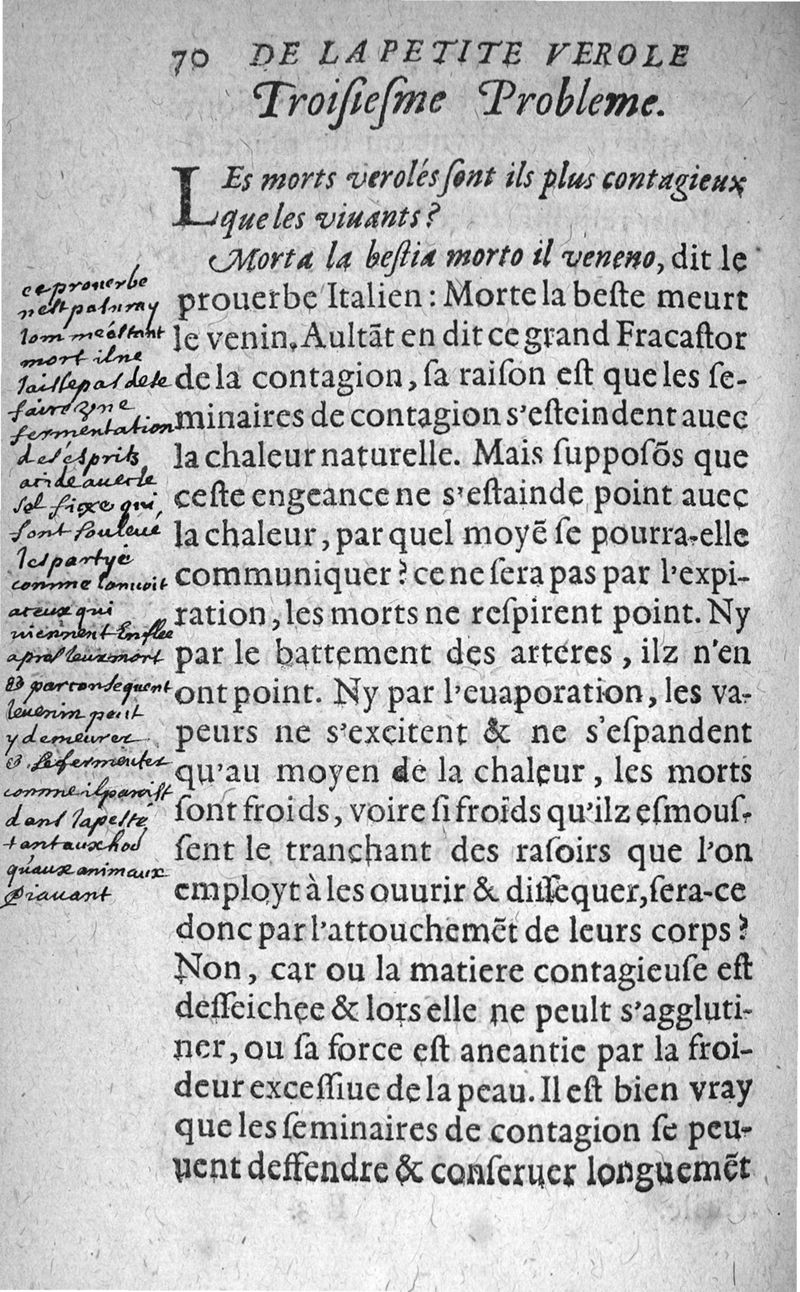 70 DE LA PETITE VEROLE
Troisiesme Probleme.
LEs morts verolés sont ils plus contagieux
que les viuants?
Morta la bestia morto il veneno, dit le
prouerbe Italien : Morte la beste meurt
le venin. Aultāt en dit ce grand Fracastor
de la contagion, sa raison est que les se-
minaires de contagion s'esteindent auec
la chaleur naturelle. Mais supposōs que
ceste engeance ne s'estainde point auec
la chaleur, par quel moyē se pourra-elle
communiquer? ce ne sera pas par l'expi-
ration, les morts ne respirent point. Ny
par le battement des arteres, ilz n'en
ont point. Ny par l'euaporation, les va-
peurs ne s'excitent & ne s'espandent
qu'au moyen de la chaleur, les morts
sont froids, voire si froids qu'ilz esmous-
sent le tranchant des rasoirs que l'on
employt à les ouurir & dissequer, sera-ce
donc par l'attouchemēt de leurs corps?
Non, car ou la matiere contagieuse est
desseichee & lors elle ne peult s'aggluti-
ner, ou sa force est aneantie par la froi-
deur excessiue de la peau. Il est bien vray
que les seminaires de contagion se peu-
uent deffendre & conseruer longuemēt
ce prouerbe
nest pas uray
lom me estant
mort il ne
laisse pas de se
faire une
fermentation
des esprits
acide auec le
sel fixe qui
sont souleue
les partye
comme lon uoit
a ceux qui
uiennent Enflee
apres leur mort
& par consequent
le uenin peut
y demeurer
& se fermenter
comme il paroist
dans la peste
tant aux hoe
quaux animaux